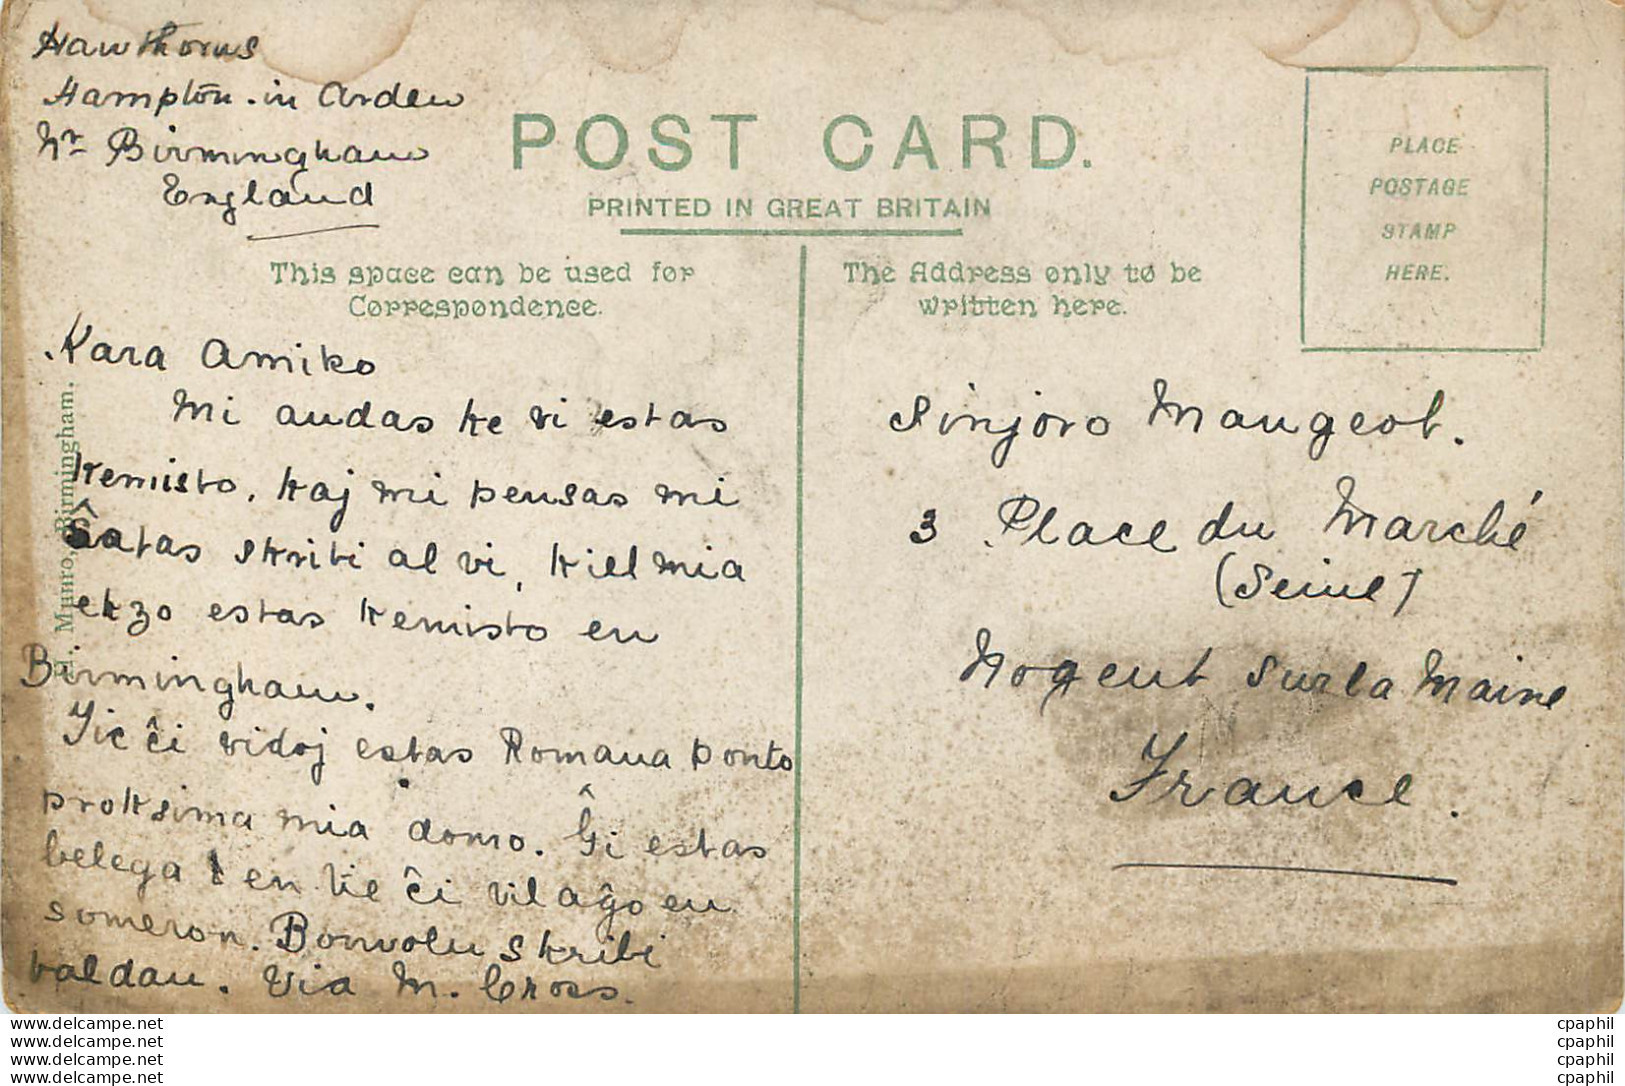 Hawthorns
Hampton-in Arden
Nr Birmingham
England
POST CARD.
PRINTED IN GREAT BRITAIN
This space can be used for
Correspondence.
The Address only to be
written here.
PLACE
POSTAGE
STAMP
HERE.
H. Munro, Birmingham.
Kara Amiko
Mi audas ke vi estas
kemisto, kaj mi pensas mi
ŝatas skribi al vi, kiel mia
ekzo estas kemisto en
Birmingham.
Tie ĉi vidoj estas Romana ponto
proksima mia domo. Ĝi estas
belega en tie ĉi vilaĝo en
someron. Bonvolu skribi
baldau. Via M. Cross.
Sinjoro Maugeot.
3 Place du Marché
(Seine)
Nogent sur la Maine
France.
www.delcampe.net
www.delcampe.net
www.delcampe.net
www.delcampe.net
cpaphil
cpaphil
cpaphil
cpaphil